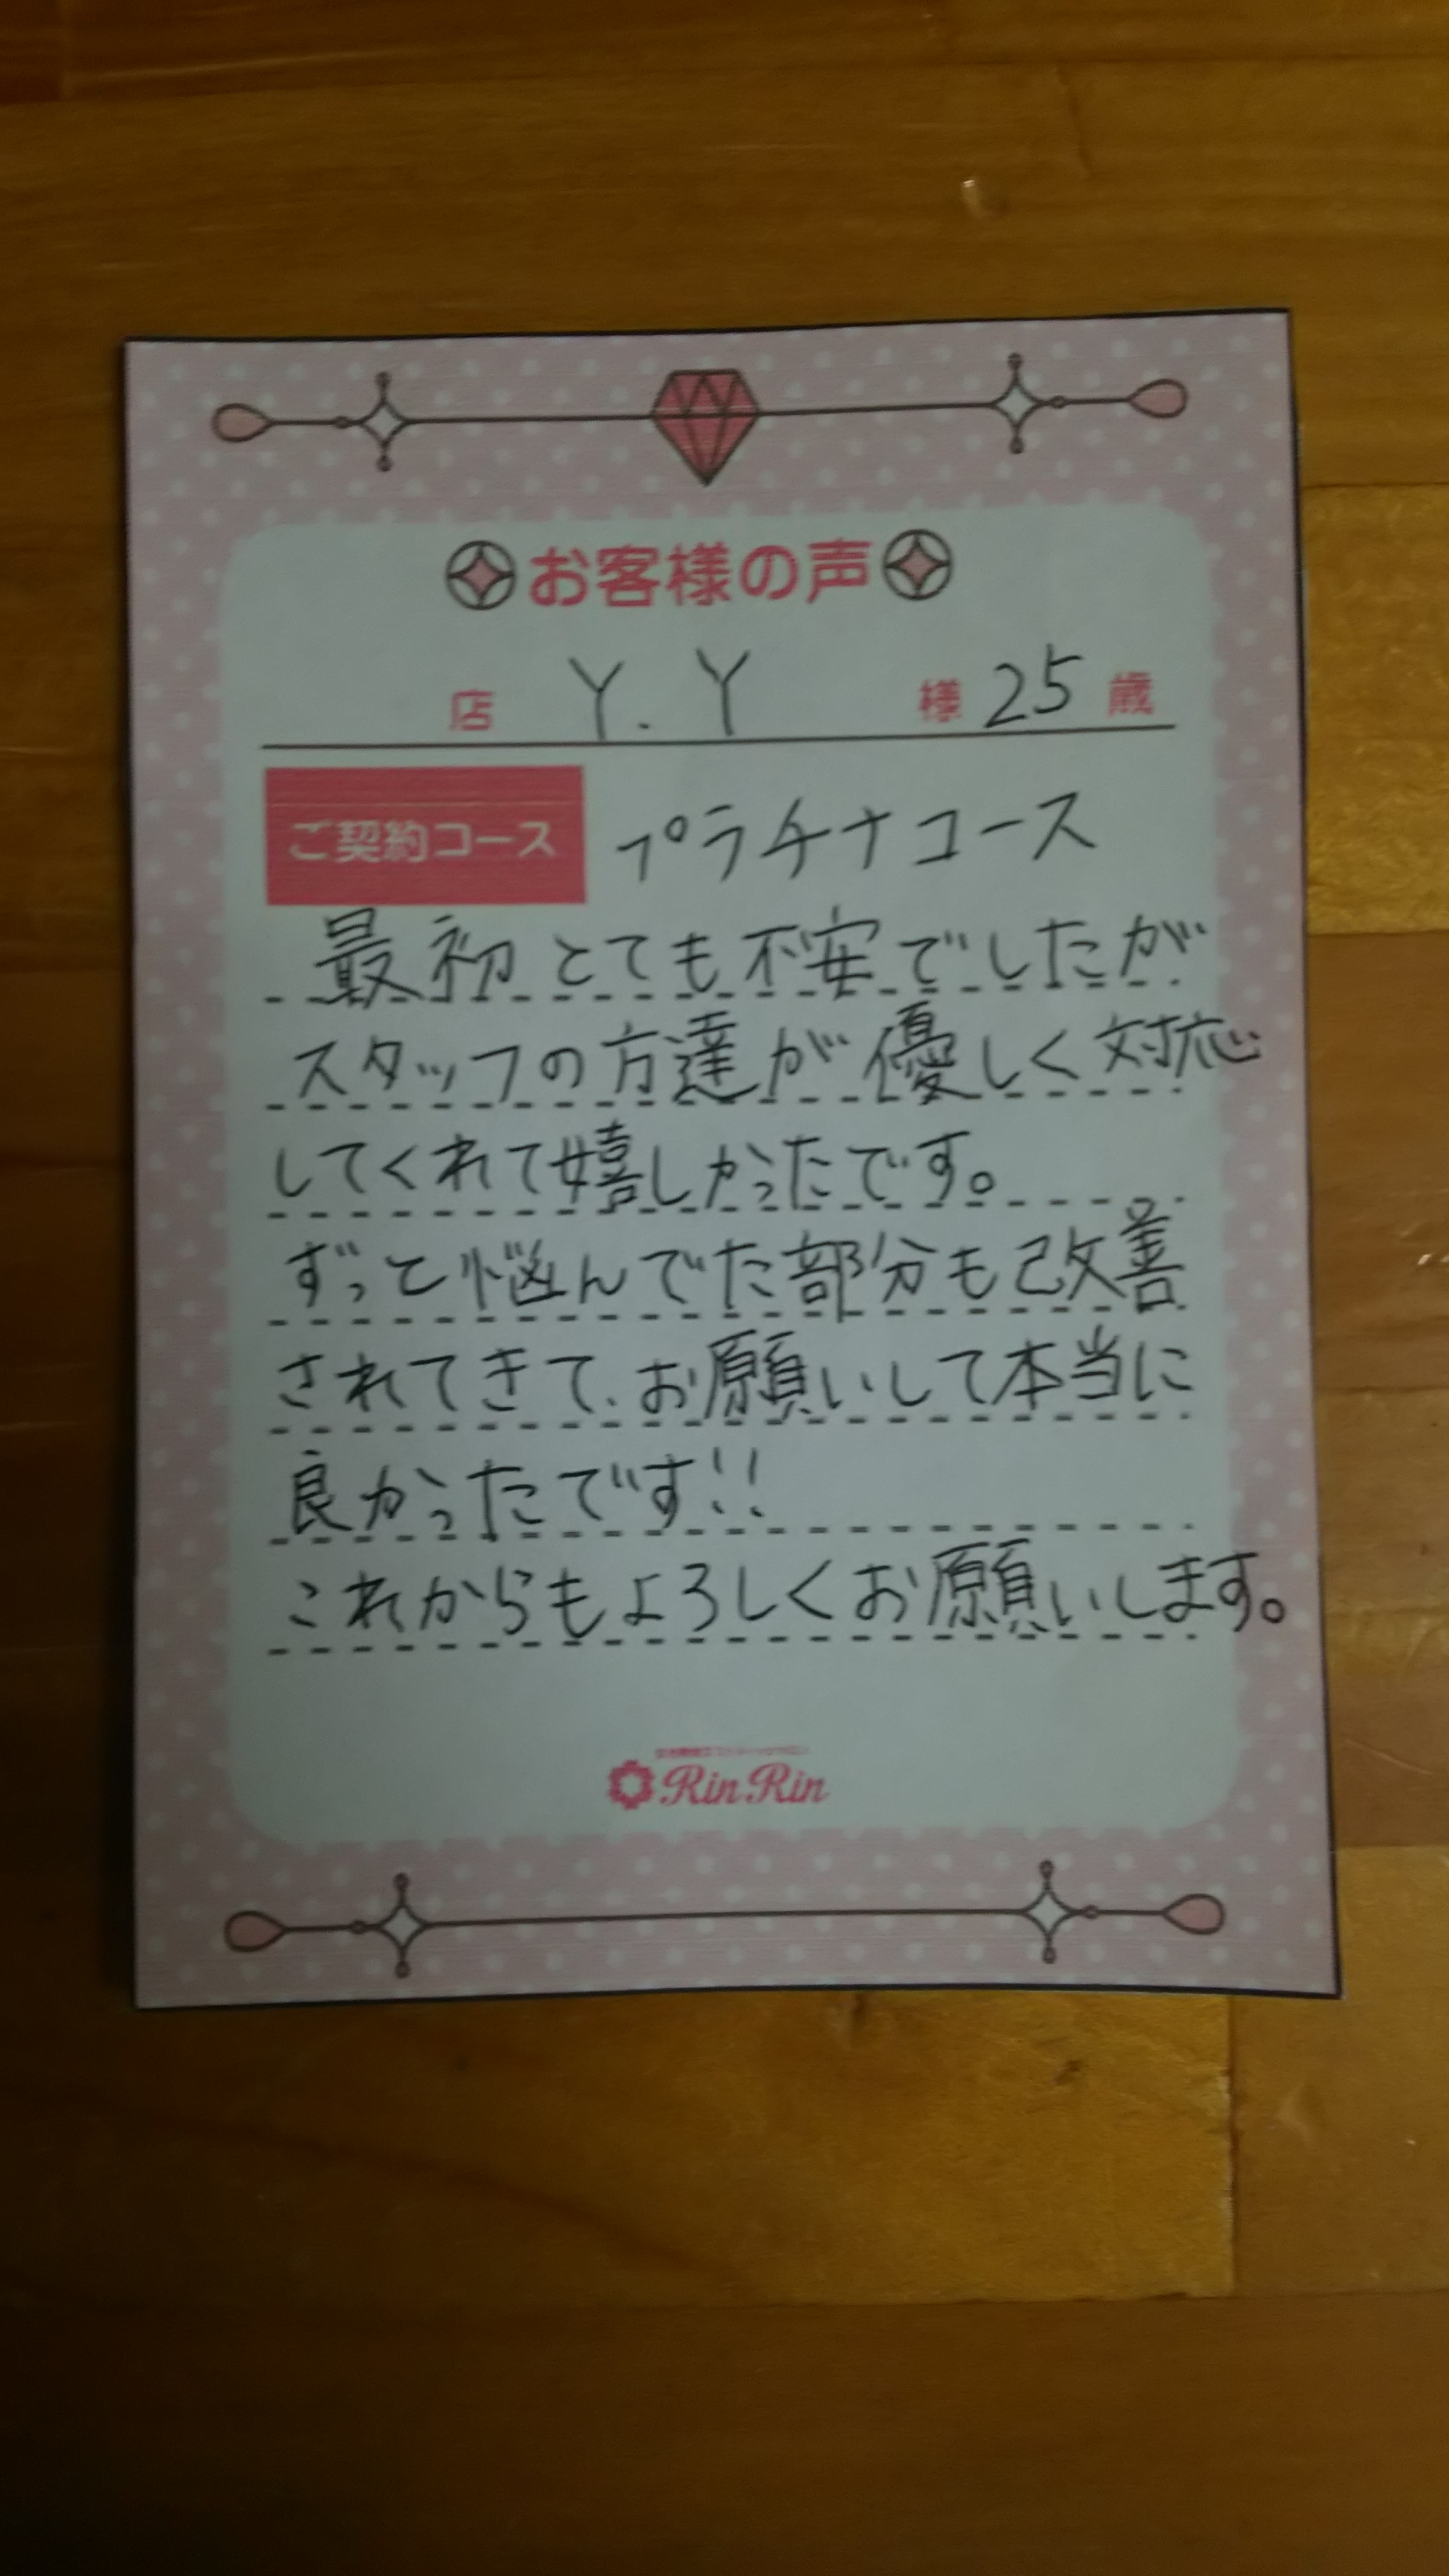 お客様の声
店 Y.Y 様 25 歳
ご契約コース プラチナコース
最初とても不安でしたが
スタッフの方達が優しく対応
してくれて嬉しかったです。
ずっと悩んでた部分も改善
されてきて、お願いして本当に
良かったです!!
これからもよろしくお願いします。
RinRin